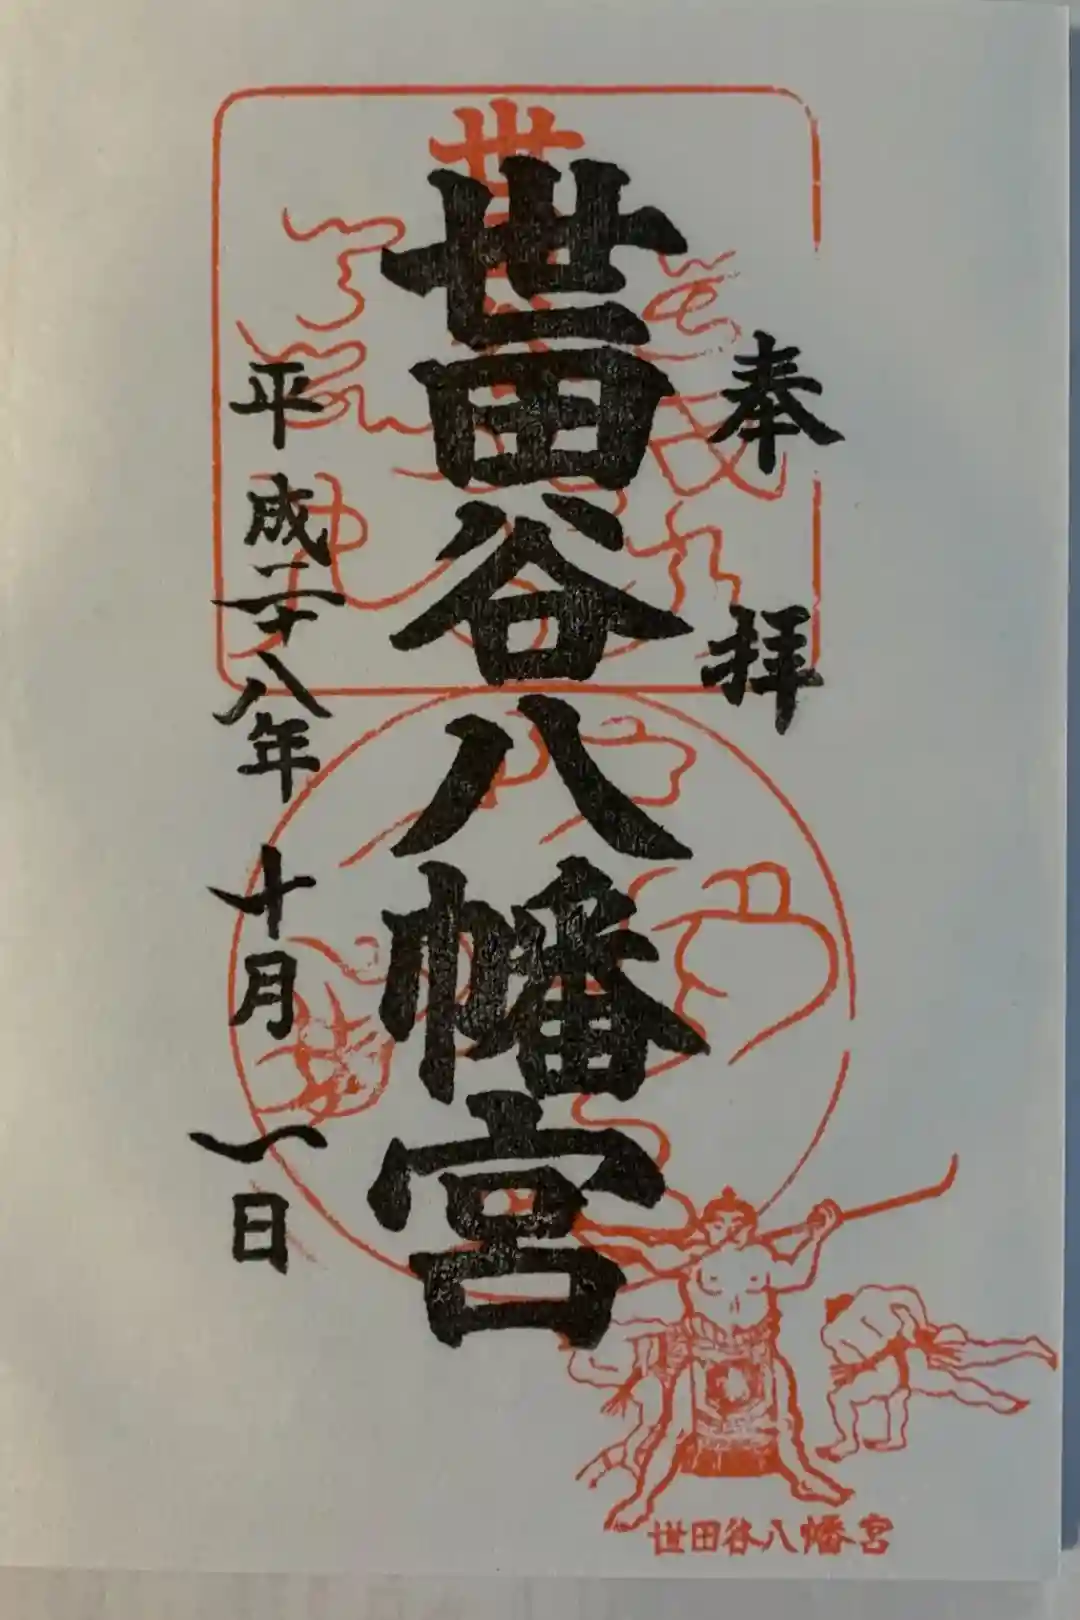 奉拝
世田谷八幡宮
平成二十八年十月一日
世田谷八幡宮